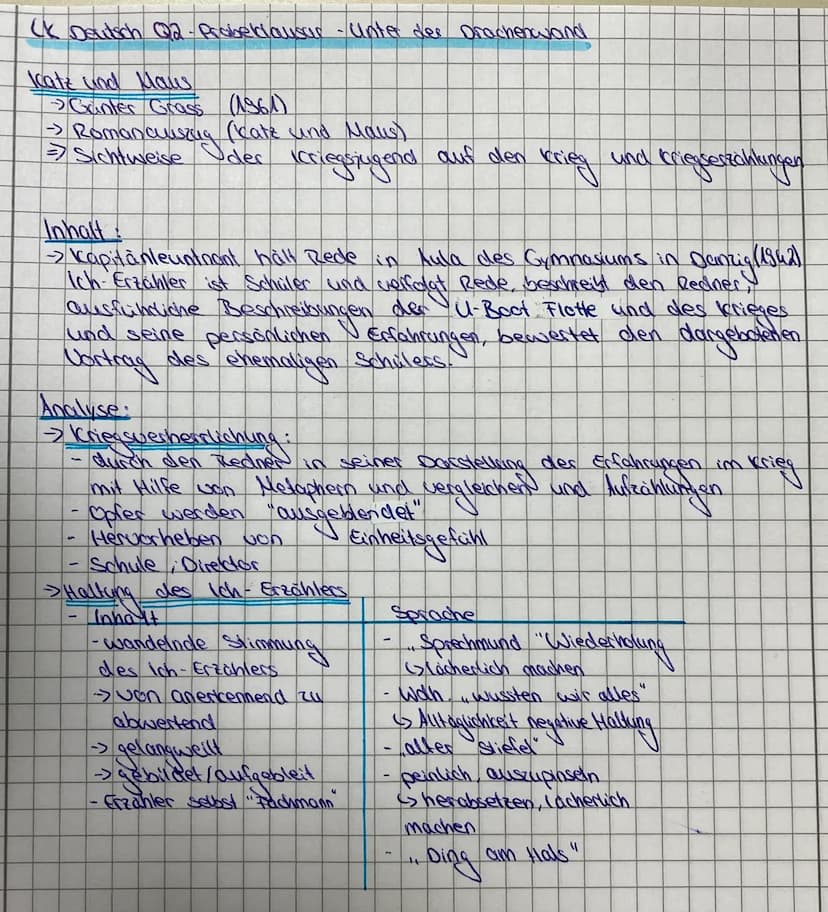 LK Deutsch Q2 - Probeklausur - Unter der Drachenwand
Katz und Maus
-> Günter Grass (1961)
-> Romanauszug (Katz und Maus)
=> Sichtweise der Kriegsjugend auf den Krieg und Kriegserzählungen
Inhalt:
-> Kapitänleutnant hält Rede in Aula des Gymnasiums in Danzig (1942)
Ich-Erzähler ist Schüler und verfolgt Rede, beschreibt den Redner,
ausführliche Beschreibungen der U-Boot Flotte und des Krieges
und seine persönlichen Erfahrungen, bewertet den dargebotenen
Vortrag des ehemaligen Schülers.
Analyse:
-> Kriegsverherrlichung:
- durch den Redner in seiner Darstellung der Erfahrungen im Krieg
mit Hilfe von Metaphern und vergleichen und Aufzählungen
- Opfer werden "ausgeblendet"
- Hervorheben von Einheitsgefühl
- Schule, Direktor
-> Haltung des Ich-Erzählers
- Inhalt
- wandelnde Stimmung
des Ich-Erzählers
-> von anerkennend zu
abwertend
-> gelangweilt
-> gebildet/aufgebleit
- Erzähler selbst "Fachmann"
Sprache
- „Sprechmund" Wiederholung
↳ lächerlich machen
- Wdh. „wussten wir alles"
↳ Alltäglichkeit negative Haltung
- „alter Stiefel"
- peinlich, auszupinseln
↳ herabsetzen, lächerlich
machen
- „Ding am Hals"